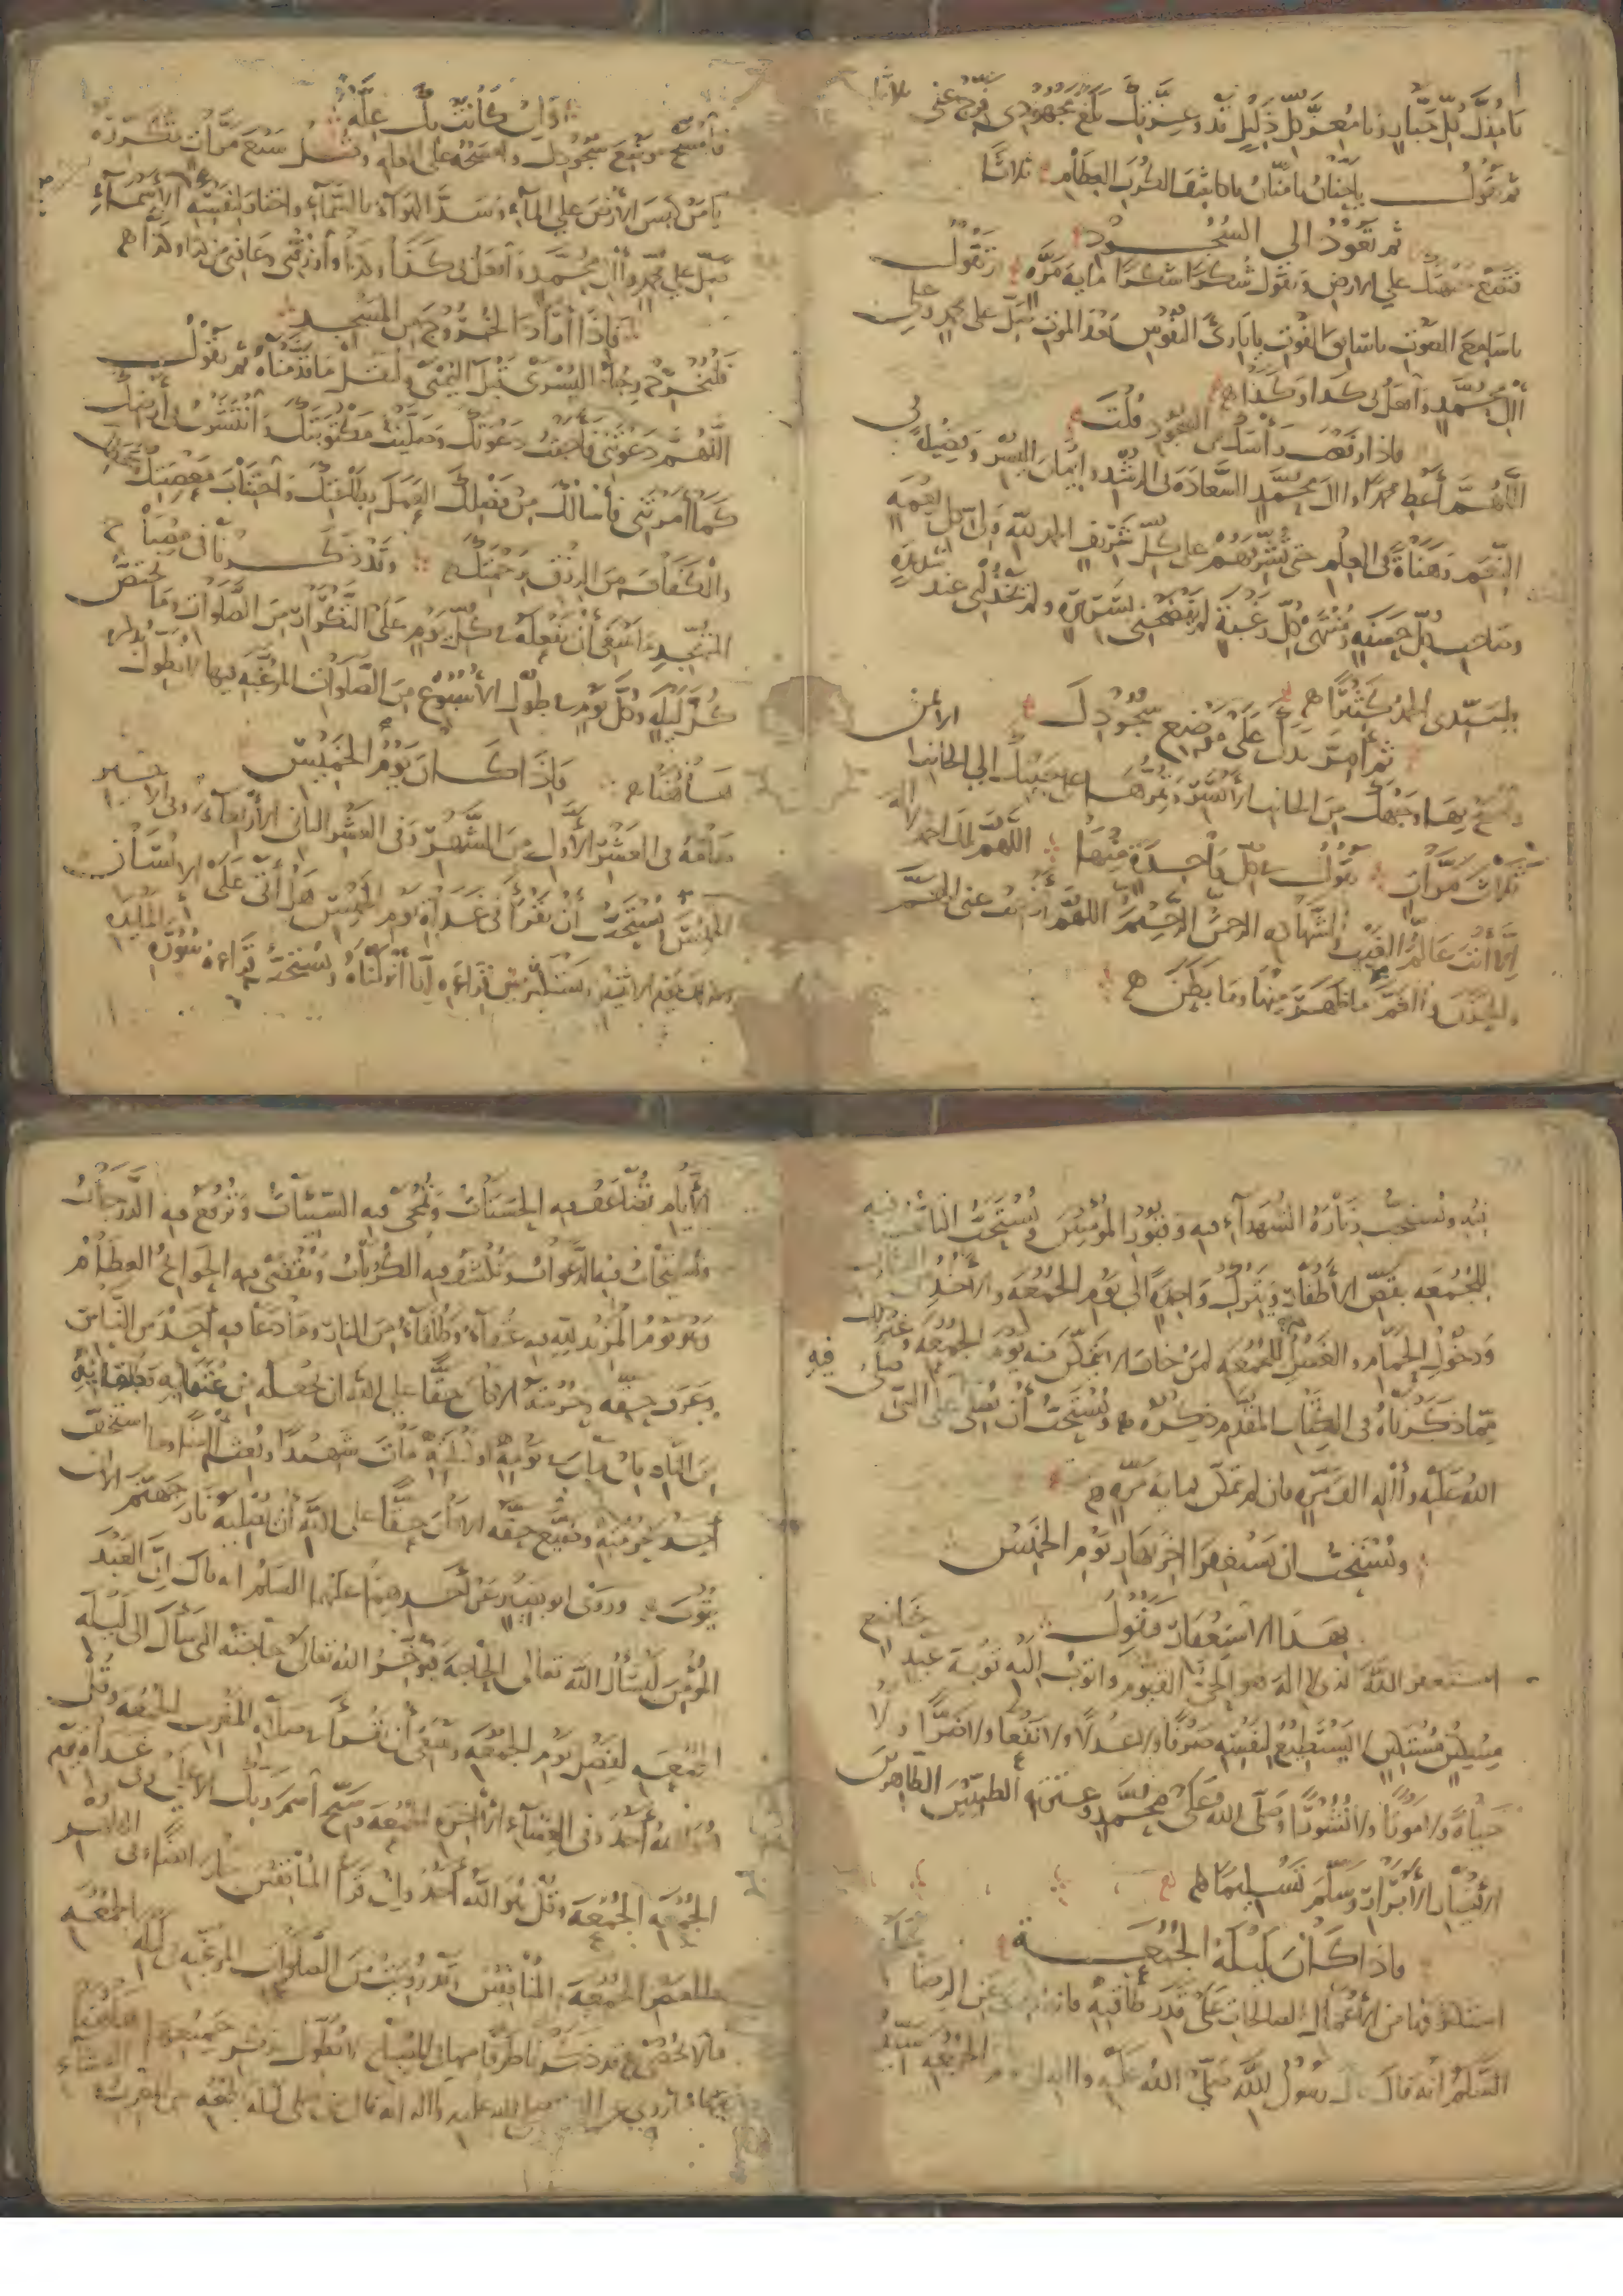 يا مذل كل جبار ويا معز كل ذليل قد وعزتك بلغ مجهودي ففرج عني ثلاثا
ثم تقول يا حنان يا منان يا كاشف الكرب العظام ثلاثا
ثم تعود الى السجود
فتضع جبهتك على الارض وتقول شكرا شكرا ماية مرة ثم تقول
يا سامع الصوت يا سابق الفوت يا بارئ النفوس بعد الموت صل على محمد وعلى
آل محمد وافعل بي كذا وكذا
فاذا رفعت رأسك من السجود قلت
اللهم أعط محمدا وال محمد السعادة في الرشد وايمان اليسر وفضيلة في
النعم وهناءة في العلم حتى تشرفهم على كل شريف الحمد لله ولي كل نعمة
وصاحب كل حسنة ومنتهى كل رغبة لم يفضحني بسريرة ولم يخذلني عند شديدة
فلسيدي الحمد كثيرا
ثم أمر يدك على موضع سجودك
وامسح بها وجهك من الجانب الأيسر وتمرها على جبينك الى الجانب الأيمن
ثلاث مرات تقول في كل واحدة منها اللهم لك الحمد لا اله
إلا أنت عالم الغيب والشهادة الرحمن الرحيم اللهم أذهب عني الهم
والحزن والغم ما ظهر منها وما بطن
وان كانت بك علة
فامسح موضع سجودك وامسحه على العلة وقل سبع مرات تكرره
يا من كبس الأرض على الماء وسد الهواء بالسماء واختار لنفسه الأسماء
صل على محمد وآل محمد وافعل بي كذا وكذا وارزقني وعافني من كذا وكذا
فاذا أراد الخروج من المسجد
فليخرج رجله اليسرى قبل اليمنى وليقل ما قدمناه ثم يقول
اللهم دعوتني فأجبت دعوتك وصليت مكتوبتك وانتشرت في أرضك
كما أمرتني فأسألك من فضلك العمل بطاعتك واجتناب معصيتك
والكفاف من الرزق برحمتك وقد ذكرنا في مصباح
المتهجد ما ينبغي أن يفعله كل يوم على التكرار من الصلوات وما يختص
كل ليلة وكل يوم في طول الأسبوع من الصلوات المرغبة فيها لا نطول بذكره
هاهنا فاذا كان يوم الخميس
صامه في العشر الأول من الشهر وفي العشر الثاني الأربعاء وفي الأخير
الخميس يستحب أن يقرأ في غداة يوم الخميس هل أتى على الانسان
وكذلك يوم الاثنين ويستكثر من قراءة إنا أنزلناه ويستحب قراءة سورة المائدة
فيه ويستحب زيارة الشهداء فيه وقبور المؤمنين ويستحب التأهب فيه
للجمعة بقص الأظفار ويترك واحدة الى يوم الجمعة والأخذ من الشارب
ودخول الحمام والغسل للجمعة لمن خاف الا يتمكن منه يوم الجمعة وغير ذلك
مما ذكرناه في الكتاب المقدم ذكره ويستحب أن يصلي فيه على النبي صلى
الله عليه وآله الف مرة فان لم يتمكن فماية مرة
ويستحب ان يستغفر اخر نهار يوم الخميس
بهذا الاستغفار فيقول
استغفر الله الذي لا إله إلا هو الحي القيوم واتوب اليه توبة عبد خاضع
مسكين مستكين لا يستطيع لنفسه صرفا ولا عدلا ولا نفعا ولا ضرا ولا
حياة ولا موتا ولا نشورا وصلى الله على محمد وعترته الطيبين الطاهرين
الأخيار الأبرار وسلم تسليما
فاذا كان ليلة الجمعة
استكثر فيها من الأعمال الصالحات على قدر طاقته فانه روي عن الرضا عليه
السلم أنه قال قال رسول الله صلى الله عليه واله ان يوم الجمعة سيد
الأيام تضاعف فيه الحسنات وتمحى فيه السيئات وترفع فيه الدرجات
وتستجاب فيه الدعوات وتكشف فيه الكربات وتقضى فيه الحوائج العظام
وهو يوم المزيد لله فيه عتقاء وطلقاء من النار وما دعا فيه أحد من الناس
وعرف حقه وحرمته الا كان حقا على الله ان يجعله من عتقائه وطلقائه
من النار فان مات في يومه أو ليلته مات شهيدا وبعث آمنا وما استخف
أحد بحرمته وضيع حقه الا كان حقا على الله أن يصليه نار جهنم الا ان
يتوب وروى ابو بصير عن أحدهما عليهما السلم انه قال ان العبد
المؤمن ليسأل الله تعالى الحاجة فيؤخر الله تعالى حاجته التي سأل الى ليلة
الجمعة لفضل يوم الجمعة وينبغي أن تقرأ في صلاة المغرب الجمعة وقل
هو الله أحد وفي العشاء الآخرة الجمعة وسبح اسم ربك الأعلى وفي غداة يوم
الجمعة الجمعة وقل هو الله أحد وان قرأ المنافقين جاز وفي
الظهر والعصر الجمعة والمنافقين وقد رويت من الصلوات المرغبة في ليلة الجمعة
ما لا تحصى قد ذكرنا طرفا منها في المصباح لا نطول بذكر جميعها
فما روي عن النبي صلى الله عليه واله انه قال من صلى ليلة الجمعة بين المغرب والعشاء